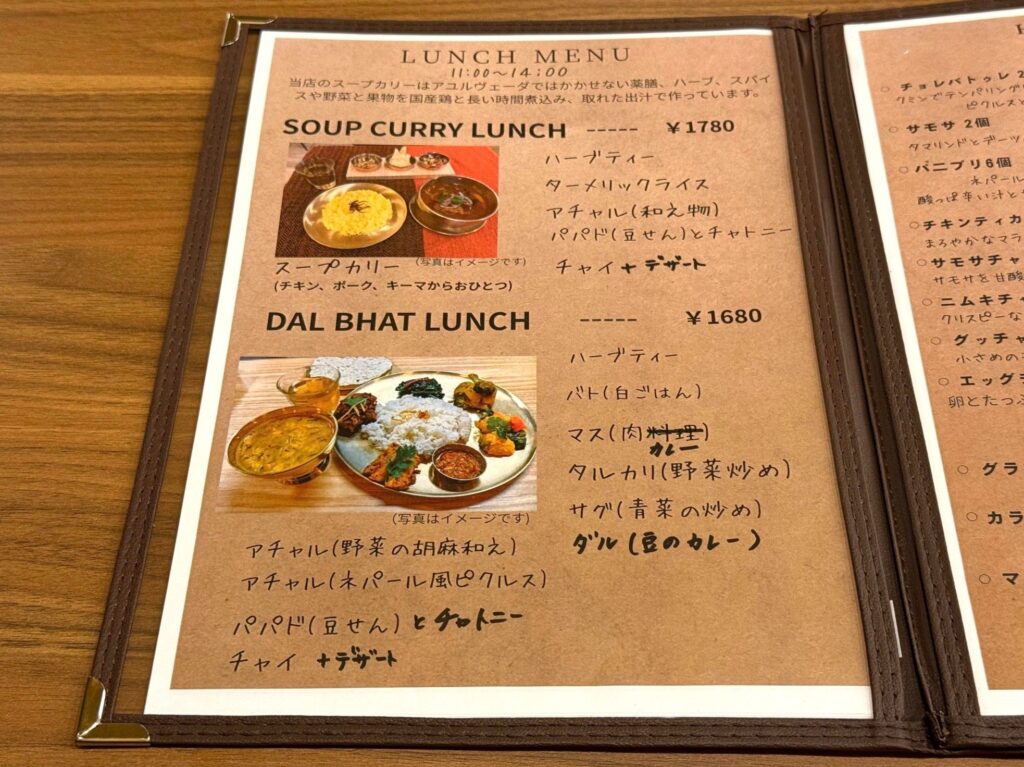 LUNCH MENU
11:00~14:00
当店のスープカリーはアユルヴェーダではかかせない薬膳、ハーブ、スパイ
スや野菜と果物を国産鶏と長い時間煮込み、取れた出汁で作っています。
SOUP CURRY LUNCH ----- ￥1780
ハーブティー
ターメリックライス
アチャル(和え物)
パパド(豆せん)とチャトニー
チャイ+デザート
スープカリー (写真はイメージです)
(チキン、ポーク、キーマからおひとつ)
DAL BHAT LUNCH ----- ￥1680
ハーブティー
バト(白ごはん)
マス(肉料理)
カレー
タルカリ(野菜炒め)
サグ(青菜の炒め)
ダル(豆のカレー)
(写真はイメージです)
アチャル(野菜の胡麻和え)
アチャル(ネパール風ピクルス)
パパド(豆せん)とチャトニー
チャイ +デザート
チョレバトゥレ 2
クミンでテンパリング
ピクルスと
○ サモサ 2個
タマリンドとデーツ
○ パニプリ6個
ネパール
酸っぱ辛い汁と
○チキンティカ
まろやかなマラ
○サモサチャ
サモサを甘酸
○ ニムキチ
クリスピーな
○ グッチャ
小さめの
○ エッグ
卵とたっぷ
○ グラ
○ カラ
○ マ